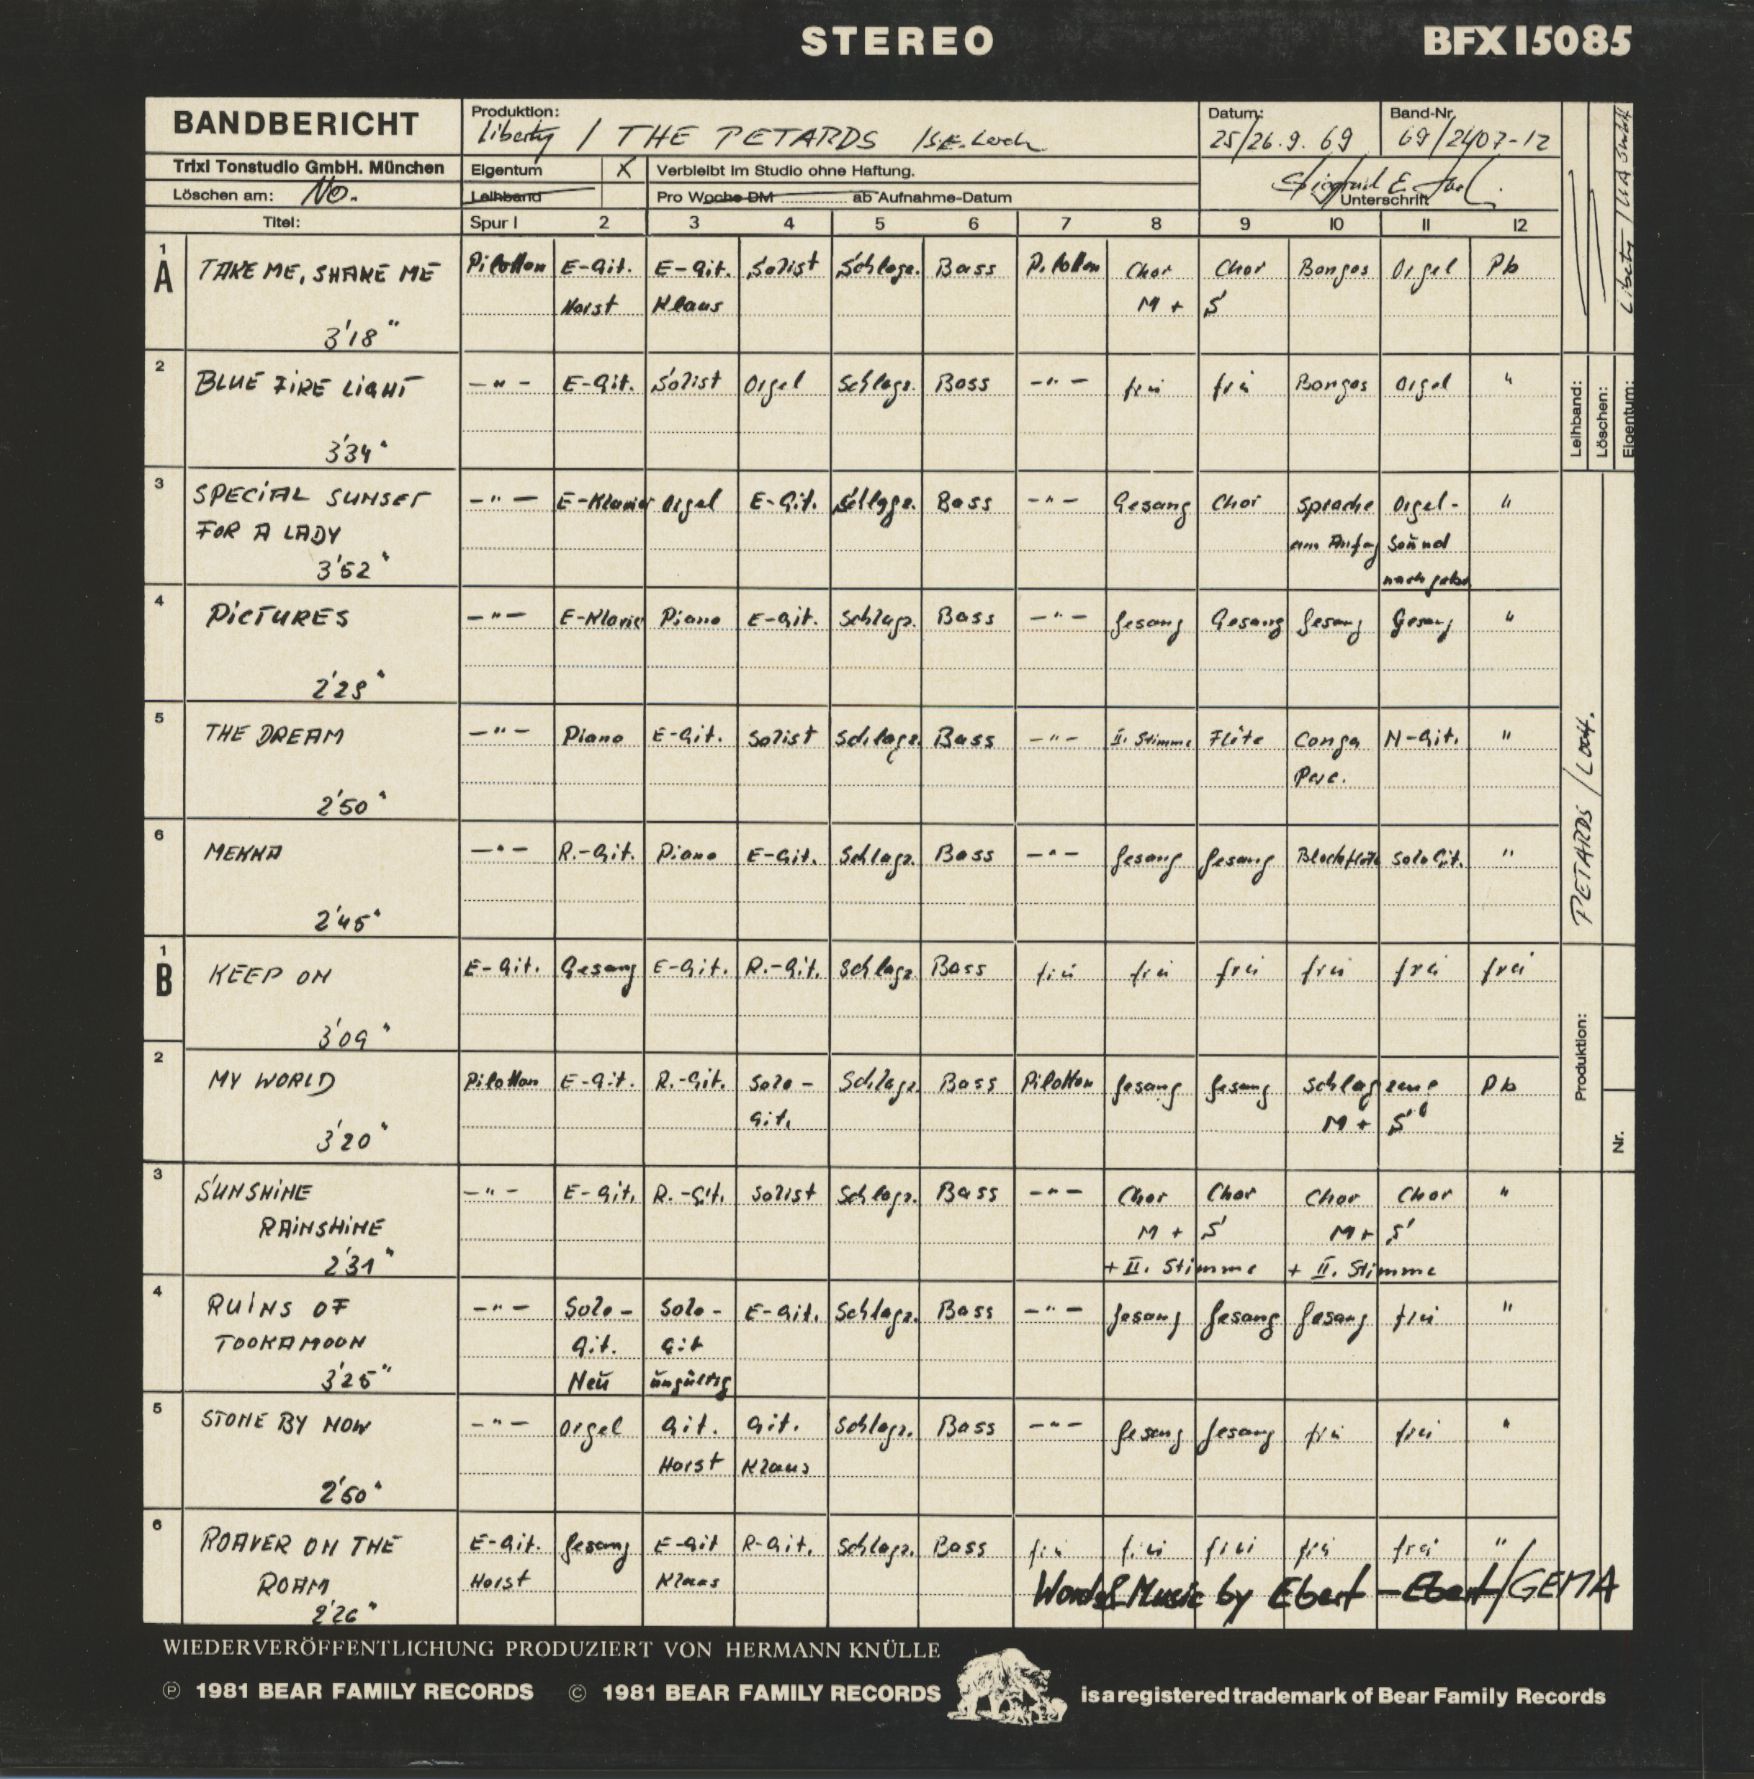 STEREO
BFX 15085
BANDBERICHT
Produktion:
Liberty / THE PETARDS / S.E. Loch
Datum:
25/26.9.69
Band-Nr.
69/2407-12
Trixi Tonstudio GmbH. München
Eigentum X Verbleibt im Studio ohne Haftung.
Löschen am: NO. Leihband Pro Woche DM ab Aufnahme-Datum
Unterschrift
Titel: Spur 1 2 3 4 5 6 7 8 9 10 11 12
1 A TAKE ME, SHAKE ME Pilotton E-Git. E-Git. Solist Schlagz. Bass Pilotton Chor Chor Bongos Orgel Pb
Horst Klaus M + S
3'18"
2 BLUE FIRE LIGHT -"- E-Git. Solist Orgel Schlagz. Bass -"- frei frei Bongos Orgel "
3'34"
3 SPECIAL SUNSET -"- E-Klavier Orgel E-Git. Schlagz. Bass -"- Gesang Chor Sprache Orgel- "
FOR A LADY am Anfang Sound
3'52"
4 PICTURES -"- E-Klavier Piano E-Git. Schlagz. Bass -"- Gesang Gesang Gesang Gesang "
2'28"
5 THE DREAM -"- Piano E-Git. Solist Schlagz. Bass -"- II. Stimme Flöte Conga N-Git. "
Perc.
2'50"
6 MEKKA -"- R.-Git. Piano E-Git. Schlagz. Bass -"- Gesang Gesang Blockflöte Solo Git. "
2'45"
1 B KEEP ON E-Git. Gesang E-Git. R.-Git. Schlagz. Bass frei frei frei frei frei frei
3'09"
2 MY WORLD Pilotton E-Git. R.-Git. Solo- Schlagz. Bass Pilotton Gesang Gesang Schlagzeug Pb
Git. M + S
3'20"
3 SUNSHINE -"- E-Git. R.-Git. Solist Schlagz. Bass -"- Chor Chor Chor Chor "
RAINSHINE M + S M + S
2'31" + II. Stimme + II. Stimme
4 RUINS OF -"- Solo- Solo- E-Git. Schlagz. Bass -"- Gesang Gesang Gesang frei "
TOOKAMOON Git. Git
3'25" Neu ungültig
5 STONE BY NOW -"- Orgel Git. Git. Schlagz. Bass -"- Gesang Gesang frei frei "
Horst Klaus
2'50"
6 ROAVER ON THE E-Git. Gesang E-Git R-Git. Schlagz. Bass frei frei frei frei frei "
ROAM Horst Klaus
2'26"
Words & Music by Ebert - Ebert / GEMA
Leihband:
Löschen:
Eigentum:
PETARDS / Loch.
Produktion:
Nr.
WIEDERVERÖFFENTLICHUNG PRODUZIERT VON HERMANN KNÜLLE
℗ 1981 BEAR FAMILY RECORDS © 1981 BEAR FAMILY RECORDS is a registered trademark of Bear Family Records